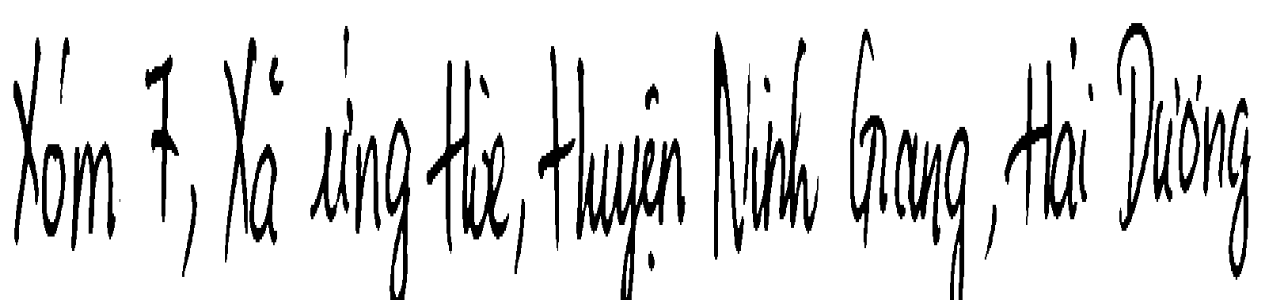 Xóm 7, Xã ứng Hoè, Huyện Ninh Giang, Hải Dương